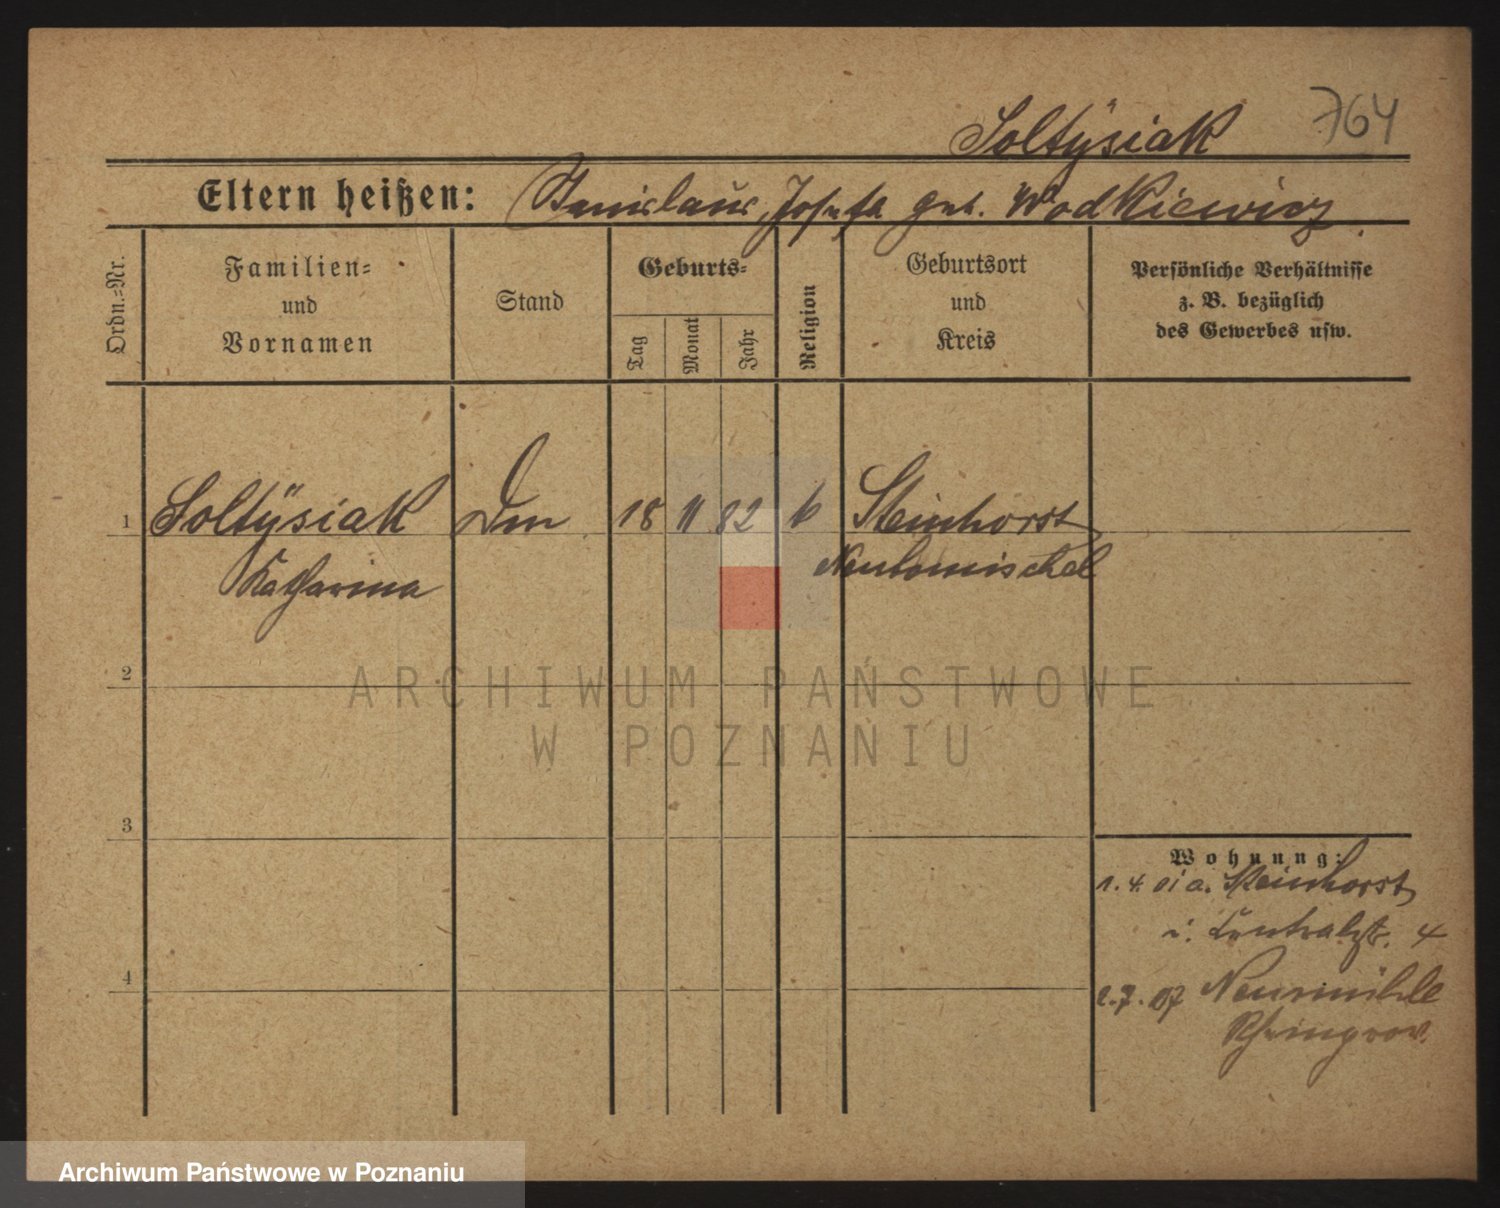 764
Soltÿsiak
Eltern heißen: Stanislaus, Josefa geb. Wodkiewicz
Ordn.=Nr.
Familien=
und
Vornamen
Stand
Geburts=
Tag
Monat
Jahr
Religion
Geburtsort
und
Kreis
Persönliche Verhältnisse
z. B. bezüglich
des Gewerbes usw.
1 Soltÿsiak 18 11 82 k Steinhorst
Katharina Neutomischel
2
ARCHIWUM PAŃSTWOWE
W POZNANIU
3
Wohnung:
1. 4. 01 a. Steinhorst
i. Centralstr. 4
4
2. 7. 07 Neumühle
Rheinprov.
Archiwum Państwowe w Poznaniu